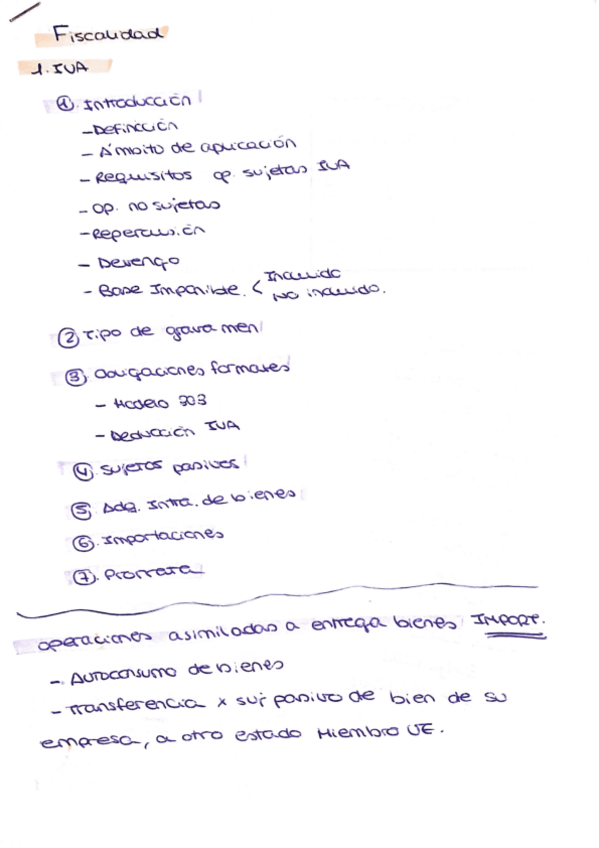 Fiscalidad
1. IVA
① Introducción
- Definición
- Ámbito de aplicación
- Requisitos op. sujetas IVA
- Op. no sujetas
- Repercusión
- Devengo
- Base Imponible. < Incluido
No incluido.
② Tipo de gravamen
③ Obligaciones formales
- Modelo 303
- Deducción IVA
④ Sujetos pasivos
⑤ Adq. Intra. de bienes
⑥ Importaciones
⑦ Prorrata
operaciones asimiladas a entrega bienes IMPORT.
- Autoconsumo de bienes
- Transferencia x suj pasivo de bien de su
empresa, a otro estado Miembro UE.